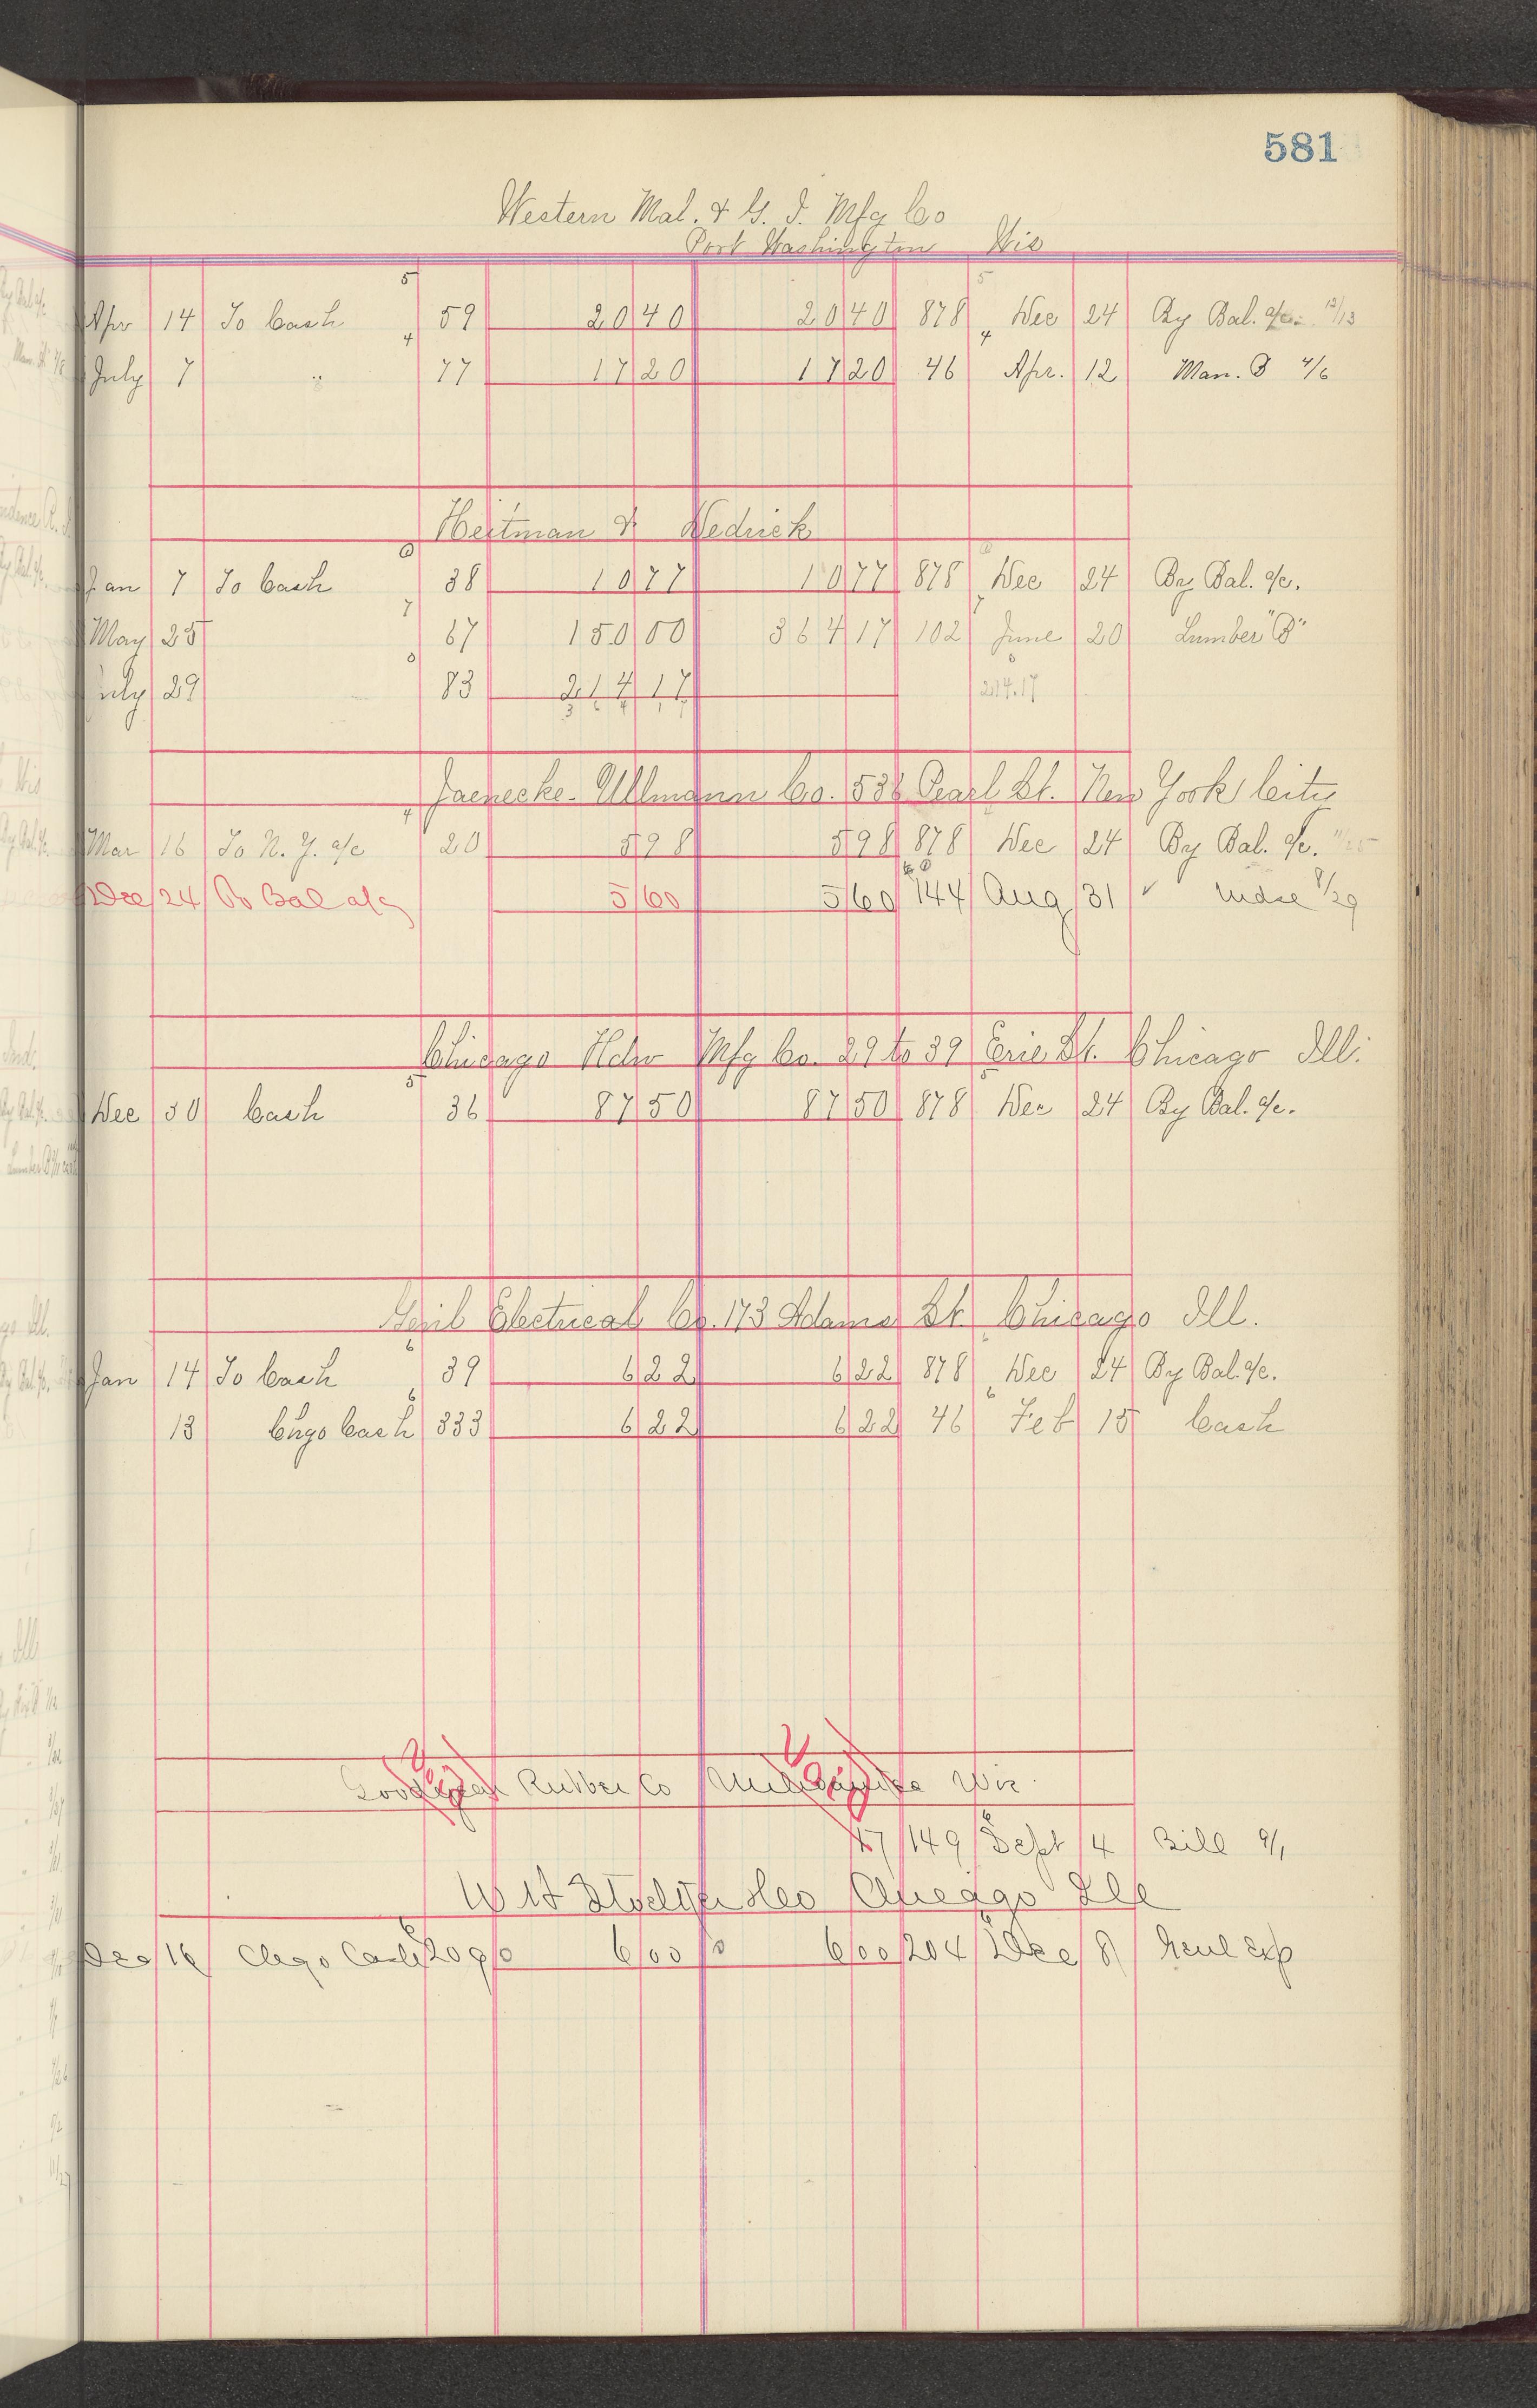 581
Western Mal. & G. I. Mfg Co
Port Washington Wis
5 5
Apr 14 To Cash 59 20 40 20 40 878 Dec 24 By Bal. a/c. 12/13
4 4
July 7 " 77 17 20 17 20 46 Apr. 12 Man. B 4/6
Heitman & Hedrick
Jan 7 To Cash 38 10 77 10 77 878 Dec 24 By Bal. a/c.
7 7
May 25 67 150 00 364 17 102 June 20 Lumber "B"
July 29 83 214 17 214.17
3 6 4 1 7
Jaenecke-Ullmann Co. 536 Pearl St. New York City
Mar 16 To N. Y. a/c 20 5 98 5 98 878 Dec 24 By Bal. a/c. 11/25
Dec 24 To Bal a/c 5 60 5 60 144 Aug 31 ✓ Mdse 8/29
Chicago Hdw Mfg Co. 29 to 39 Erie St. Chicago Ill.
5
Dec 30 Cash 36 87 50 87 50 878 Dec 24 By Bal. a/c.
Electrical Co. 173 Adams St. Chicago Ill.
6
Jan 14 To Cash 39 6 22 6 22 878 Dec 24 By Bal. a/c.
6 6
13 Chgo Cash 333 6 22 6 22 46 Feb 15 Cash
Void Void
Goodyear Rubber Co Milwaukee Wis.
47 149 Sept 4 Bill 9/1
W H Chicago Ill
Dec 16 Chgo Cash 209 6 00 6 00 204 Dec 8 Genl Exp